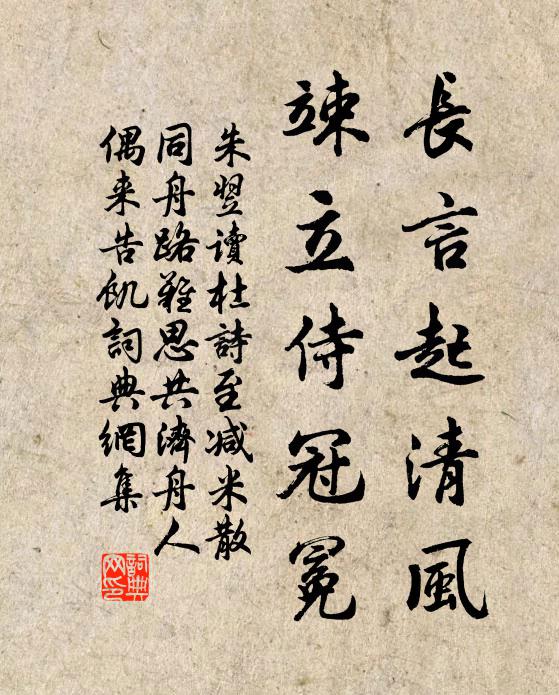 長言起清風
竦立侍冠冕
朱翌讀杜詩至减米散
同舟路難思共濟舟人
偶来告飢詞典網集
詞典网印